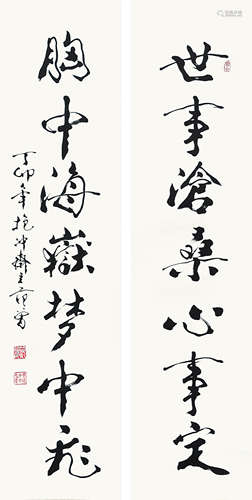 世事滄桑心事定
胸中海嶽夢中飛
丁卯年抱沖齋主范曾